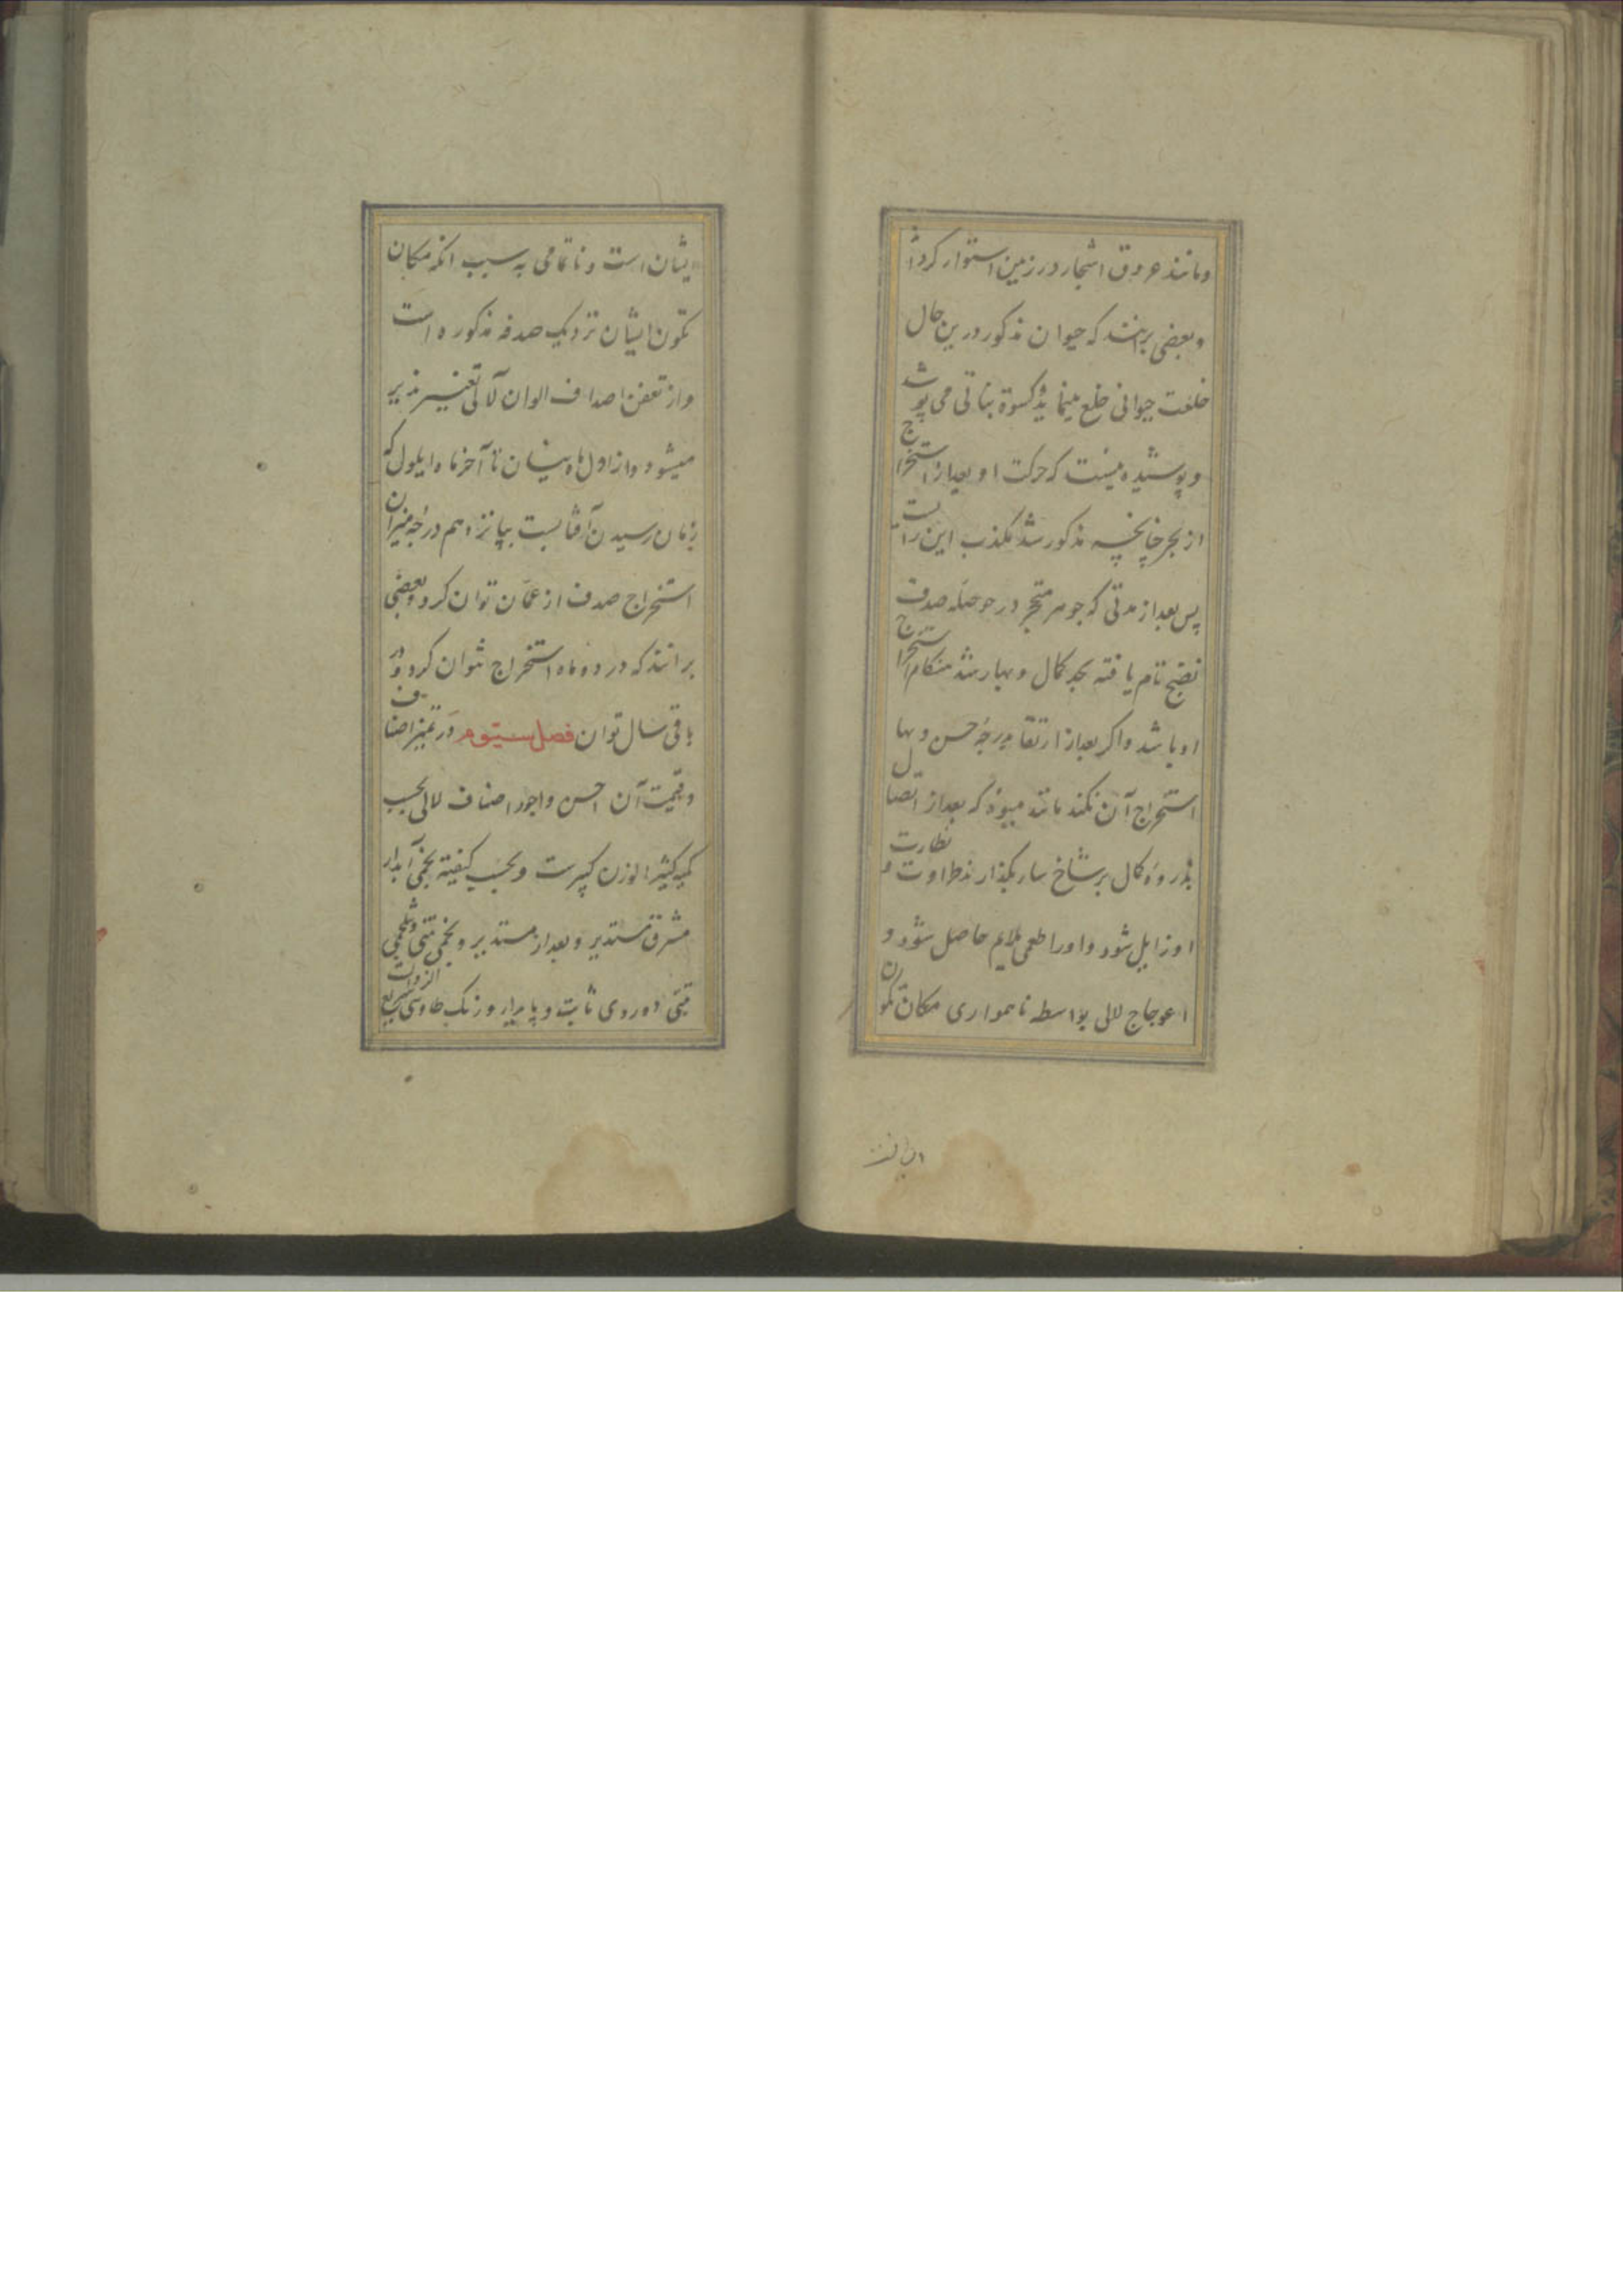 و مانند عروق اشجار در زمین استوار کردد
و بعضی برانند که حیوان مذکور درین حال
خلعت حیوانی خلع مینماید و کسوة نباتی می پوشد
و پوشیده نیست که حرکت او بعد از استخراج
از بحر چنانچه مذکور شد مکذب این رایست
پس بعد از مدتی که جوهر متحجر در حوصله صدف
نضج تام یافته بحد کمال و بها رسد هنکام استخراج
او باشد و اکر بعد از ارتقا بدرجه حسن و بها
استخراج آن نکند مانند میوه که بعد از اتصال
بذروه کمال بر شاخسار بکذارند طراوت و نظارت
او زایل شود و او را طعمی ملایم حاصل شود و
اعوجاج لالی بواسطه ناهمواری مکان تکون
ایشان است و ناتمامی به سبب آنکه مکان
تکون ایشان نزدیک صدفه مذکوره است
و از تعفن اصداف الوان لآلی تغییر پذیر
میشود و از اول ماه نیسان تا آخر ماه ایلول که
زمان رسیدن آفتابست بپانزدهم درجه میزان
استخراج صدف از عمان توان کرد و بعضی
برانند که در دو ماه استخراج توان کرد و در
باقی سال توان فصل سیوم در تمیز اصناف
و قیمت آن احسن و اجود اصناف لالی بحسب
کمیه کثیر الوزن کبیرست و بحسب کیفیة نجمی آبدار
مشرق مستدیر و بعد از مستدیر و نجمی تبنی و شلجمی
تبنی و وردی ثابت و پایدار و رنک طاوسی سریع الزوالست